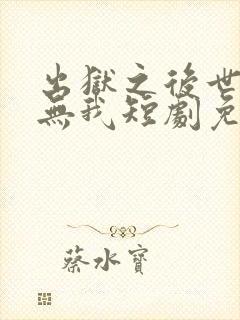 出獄之後世
無我短劇免
蔡水寶